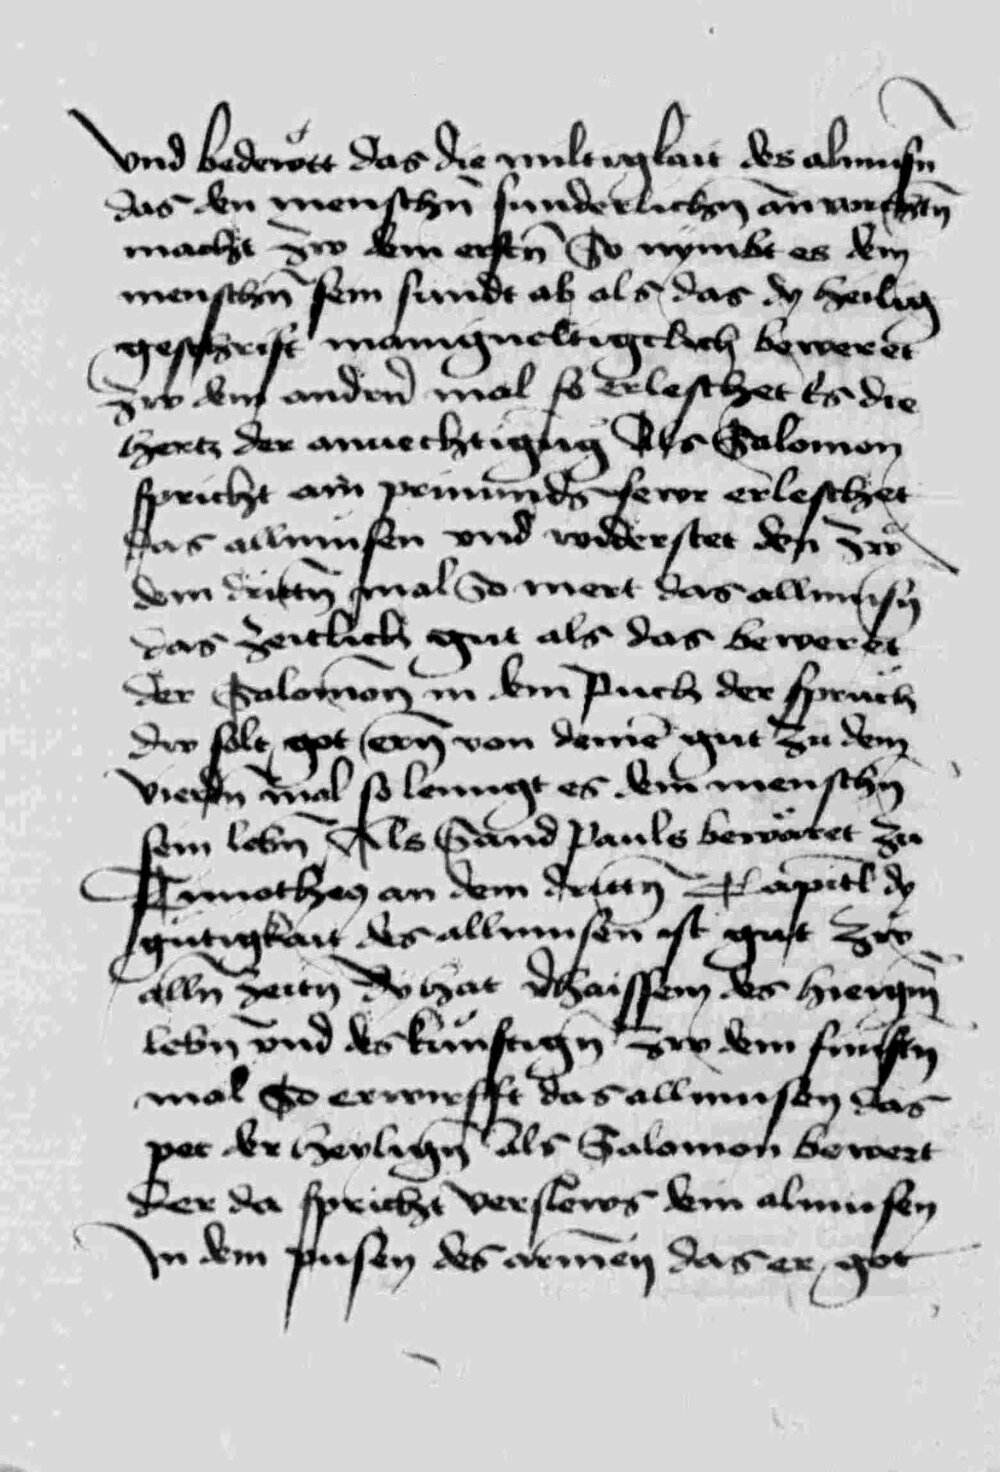 Vnd bedewtt das die miltigkait des almusn̄
das den menschn̄ sunderlichn̄ an
macht Zw dem erstn̄ So nymbt es dem
menschn̄ sein sundt ab als das dy heilig
geschrift manigueltigclich beweret
Zw dem andern̄ mal so erleschet Es die
hertz der anuechtigūg Als Salomon
spricht ain prinunds fewr erleschet
das allmusen vnd widerstet den Zw
dem drittn̄ mal So mert das allmusn̄
das Zeitlich gut als das beweret
der Salomon in dem Puch der sprüch
dw solt got ern̄ von deinē gut Zu dem
vierdn̄ mal so lenngt es dem menschn̄
sein lebn̄ Als Sand Pauls bewäret Zu
Timotheo an dem drittn̄ Capitl dy
gutigkait des allmusen ist gut Zw
alln̄ Zeitn̄ dy hat vhaissen des hiergn̄
lebn̄ vnd des kunftign̄ Zw dem funftn̄
mal So erwirfft das allmusen das
pet der heylign̄ Als Salomon bewert
der da spricht verslews dein almusen
In dem pusen des armen das er got